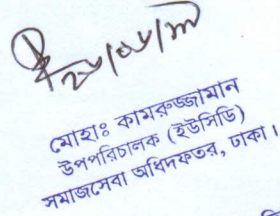 মোহাঃ কামরুজ্জামান
উপপরিচালক (ইউসিডি)
সমাজসেবা অধিদফতর, ঢাকা।